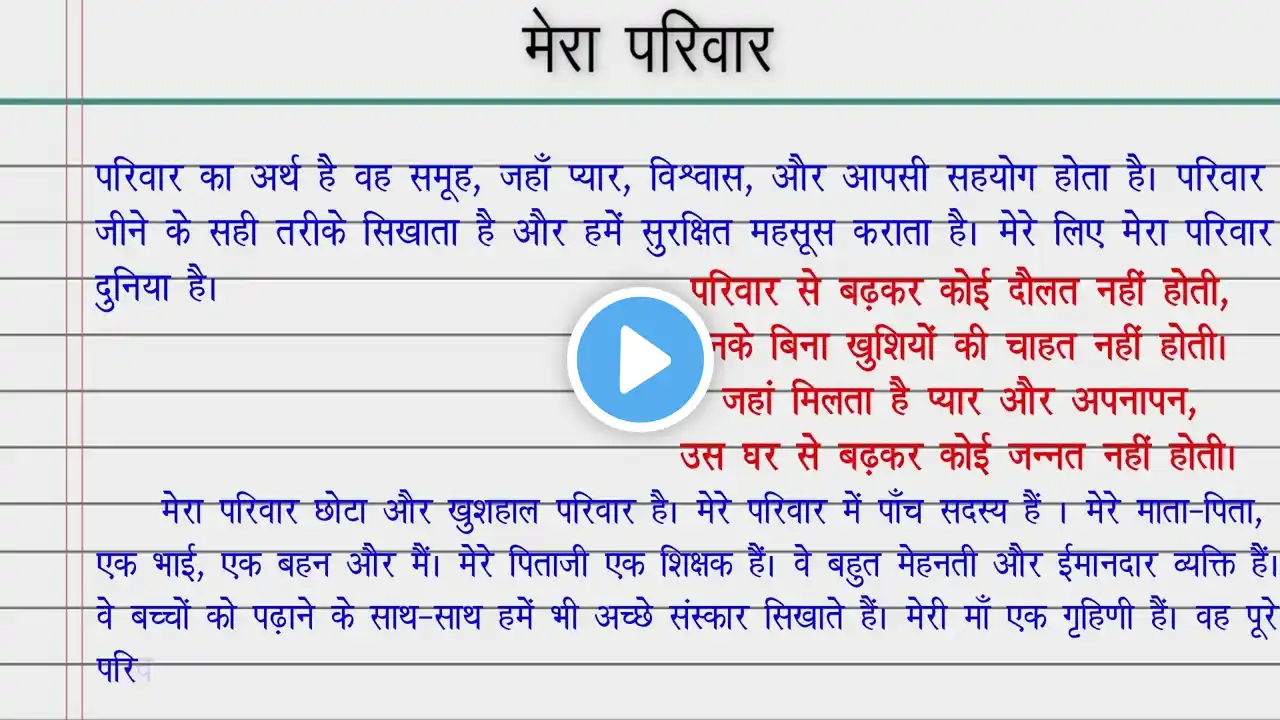 मेरा परिवार
परिवार का अर्थ है वह समूह, जहाँ प्यार, विश्वास, और आपसी सहयोग होता है। परिवार
जीने के सही तरीके सिखाता है और हमें सुरक्षित महसूस कराता है। मेरे लिए मेरा परिवार
दुनिया है।
परिवार से बढ़कर कोई दौलत नहीं होती,
बिना खुशियों की चाहत नहीं होती।
जहां मिलता है प्यार और अपनापन,
उस घर से बढ़कर कोई जन्नत नहीं होती।
मेरा परिवार छोटा और खुशहाल परिवार है। मेरे परिवार में पाँच सदस्य हैं । मेरे माता-पिता,
एक भाई, एक बहन और मैं। मेरे पिताजी एक शिक्षक हैं। वे बहुत मेहनती और ईमानदार व्यक्ति हैं।
वे बच्चों को पढ़ाने के साथ-साथ हमें भी अच्छे संस्कार सिखाते हैं। मेरी माँ एक गृहिणी हैं। वह पूरे
परिव